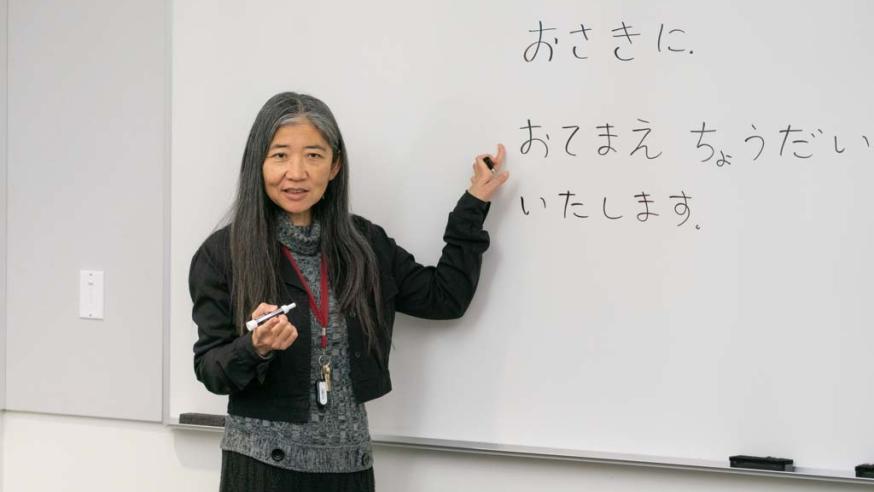 おさきに.
おてまえ ちょうだい
いたします。